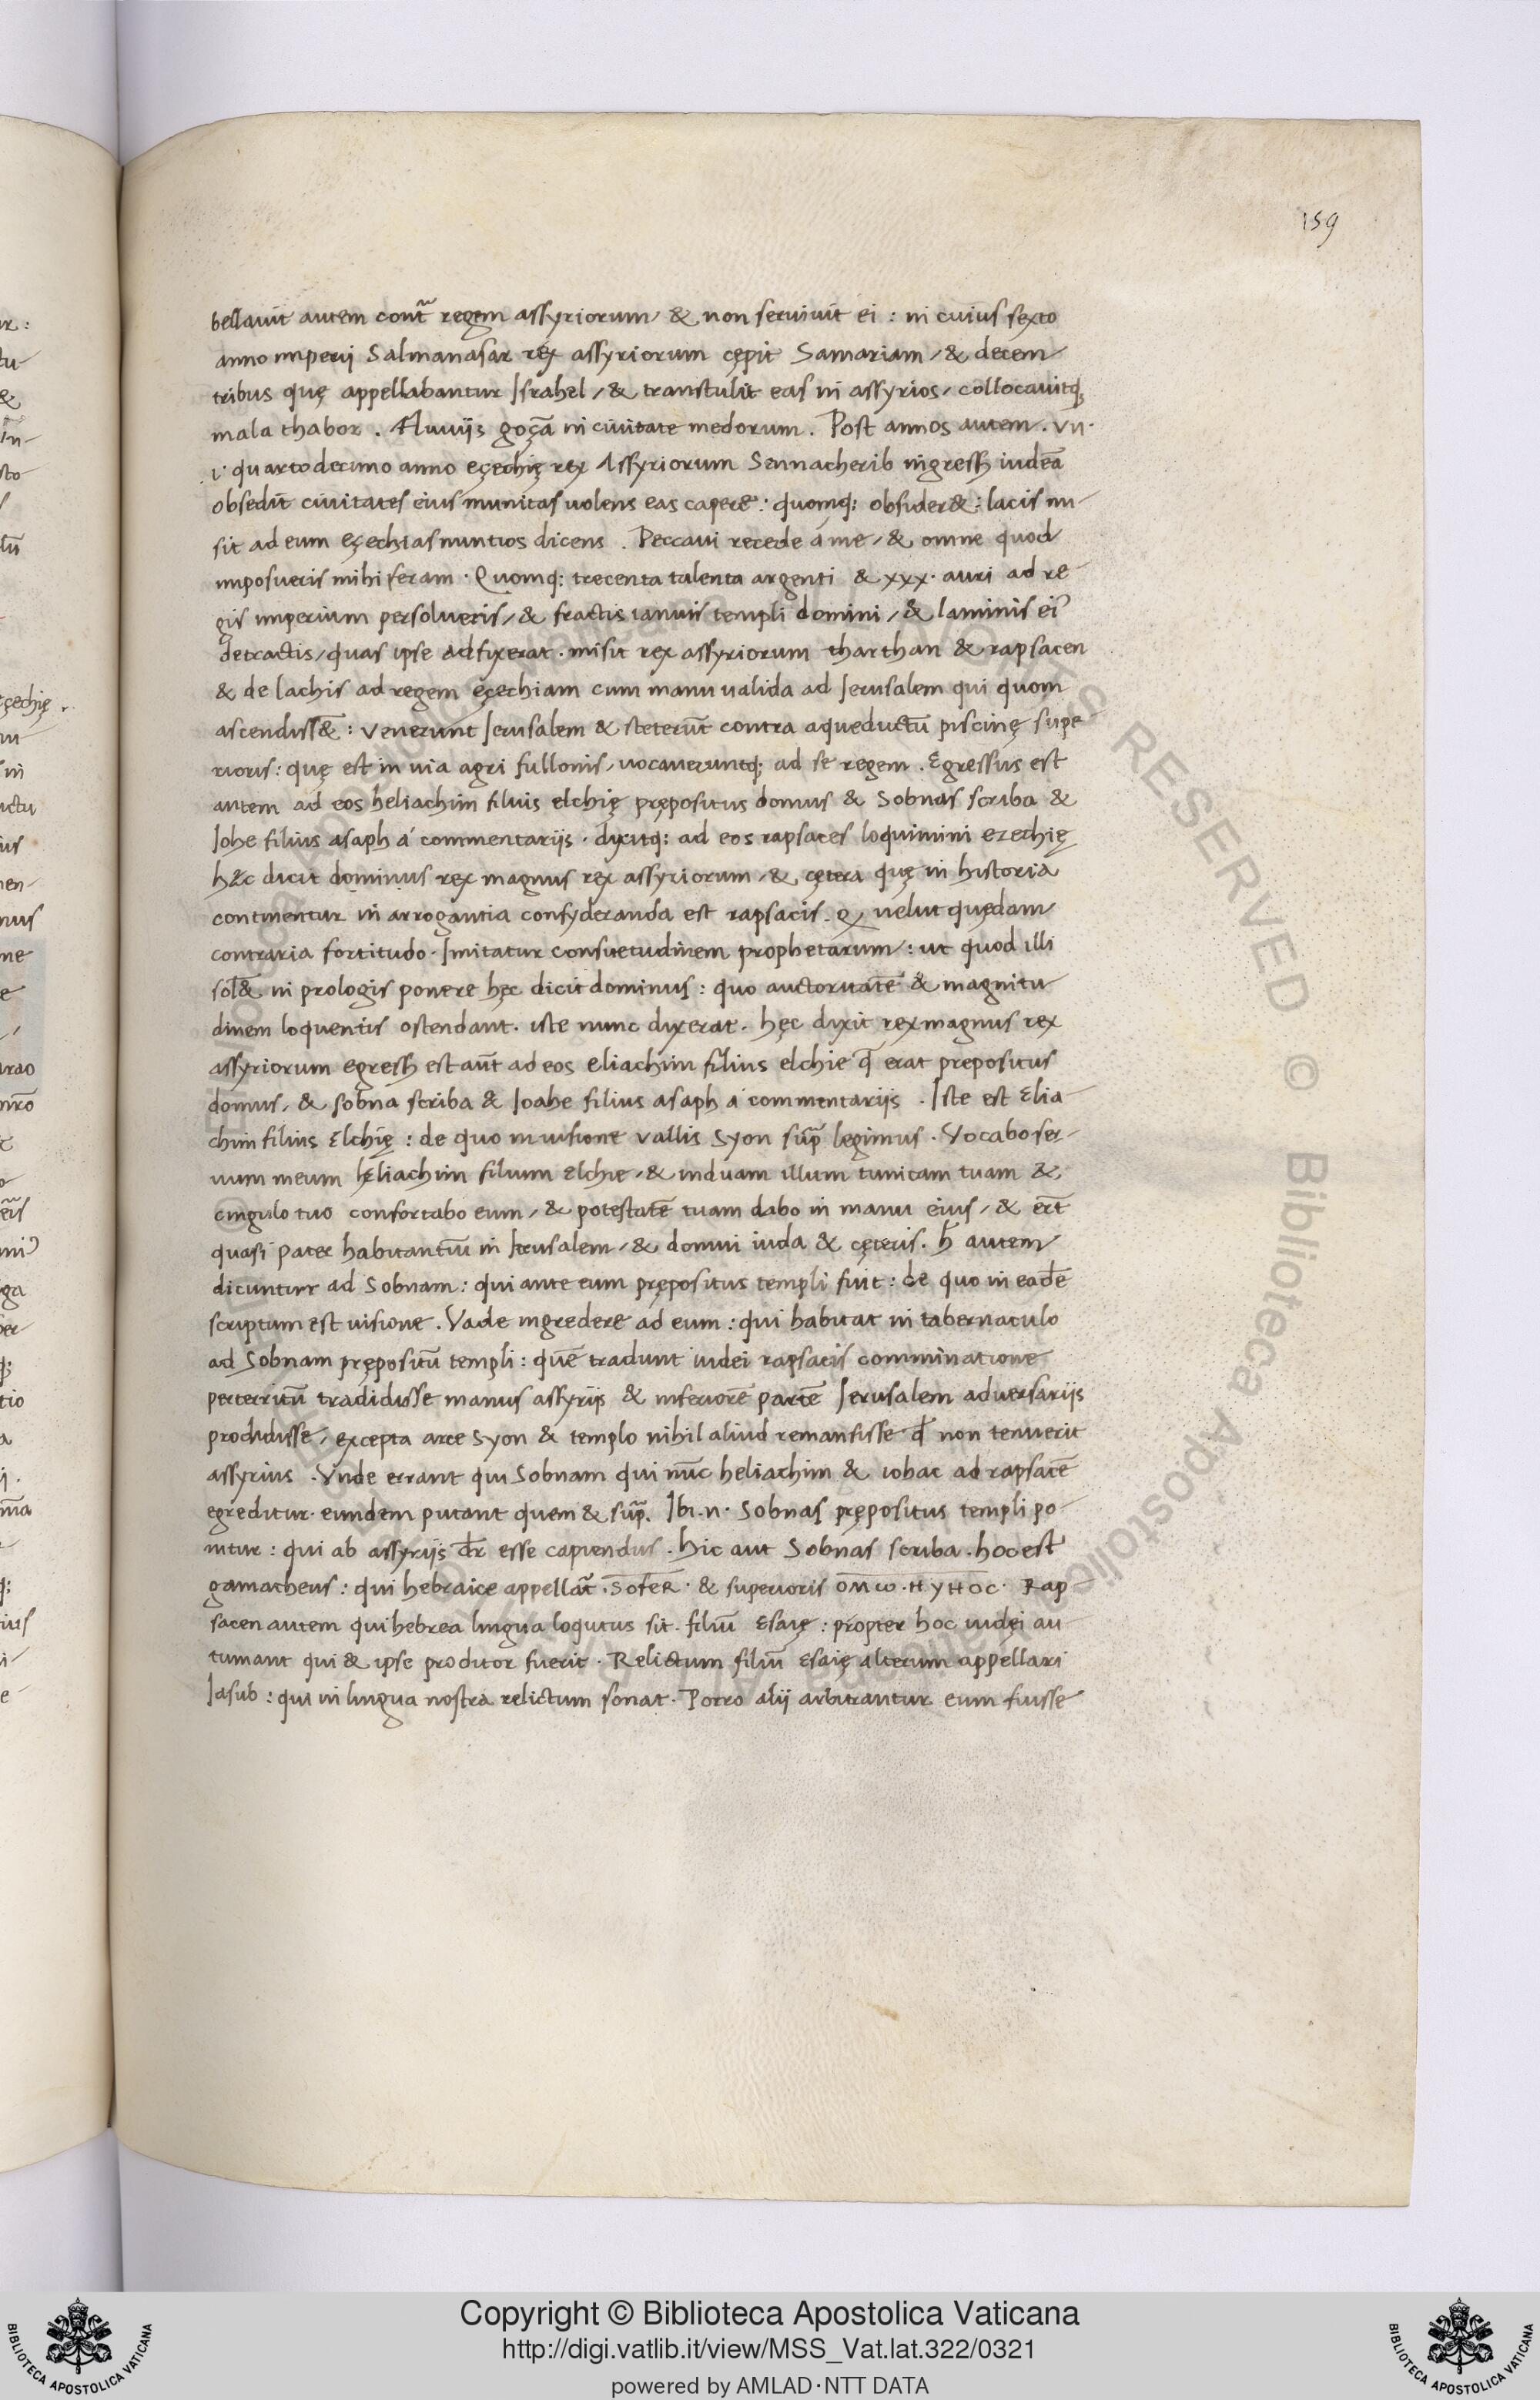 159
bellauit autem contᷓ regem assyriorum, & non seruiuit ei : in cuius sexto
anno imperij Salmanasar rex assyriorum cępit Samariam, & decem
tribus quę appellabantur Israhel, & transtulit eas in assyrios, collocauitq;
mala thabor . fluuijs goçā in ciuitate medorum . Post annos autem . VII.
.i. quartodecimo anno eçechię rex Assyriorum Sennacherib ingress; iudeā
obsedit ciuitates eius munitas uolens eas capere : quomq; obsider& : lacis mi-
sit ad eum eçechias nuntios dicens . Peccaui recede á me, & omne quod
imposueris mihi feram . Quomq; trecenta talenta argenti & xxx. auri ad re
gis imperium persolueris, & fractis ianuis templi domini, & laminis ei᾿
detractis, quas ipse adfixerat . misit rex assyriorum tharthan & rapsacen
& de lachis ad regem eçechiam cum manu ualida ad Jerusalem qui quom
ascendiss& : venerunt Jerusalem & steterūt contra aqueductū piscinę supe
rioris : quę est in uia agri fullonis, uocaueruntq; ad se regem . Egressus est
autem ad eos heliachim filius elchię prępositus domus & Sobnas scriba &
Johe filius asaph á commentarijs . dixitq; ad eos rapsaces loquimini ezechię
hęc dicit dominus rex magnus rex assyriorum, & cętera quę in historia
continentur in arrogantia consyderanda est rapsacis . q uelut quędam
contraria fortitudo . Imitatur consuetudinem prophetarum : ut quod illi
sol& in prologis ponere hęc dicit dominus : quo auctoritatē & magnitu
dinem loquentis ostendant . iste nunc dixerat . hęc dixit rex magnus rex
assyriorum egress; est aūt ad eos eliachim filius elchie q̄ erat prepositus
domus, & sobna scriba & Joahe filius asaph a commentarijs . Iste est Elia-
chim filius Elchię : de quo in uisione vallis Syon sup̄ legimus . Vocabo ser-
uum meum heliachim filium elchie, & induam illum tunicam tuam &
cingulo tuo confortabo eum, & potestatē tuam dabo in manu eius, & erīt
quasi pater habitantiū in Jerusalem, & domui iuda & cęteris . h̄ autem
dicuntur ad Sobnam : qui ante eum prępositus templi fuit : de quo in eadē
scriptum est uisione . Vade ingredere ad eum : qui habitat in tabernaculo
ad Sobnam prępositū templi : quē tradunt iudei rapsacis comminatione
perterritū tradidisse manus assyrijs & inferiorē partē Jerusalem aduersarijs
prodidisse, excepta arce Syon & templo nihil aliud remansisse q̄d non tenuerit
assyrius . Vnde errant qui Sobnam qui nūc heliachim & iohac ad rapsacē
egreditur . eundem putant quem & sup̄. Ibi .n. Sobnas prępositus templi po-
nitur : qui ab assyrijs dr̄ esse capiendus . hic aut Sobnas scriba . hoc est
gamatheus : qui hebraice appellat᷑ . SofeR . & superioris OMω . H y HOC . Rap-
sacen autem qui hebrea lingua loqutus sit . filiū Esaię : propter hoc iudęi au
tumant qui & ipse proditor fuerit . Relictum filiū Esaię alterum appellari
Jasub : qui in lingua nostra relictum sonat . Porro alij arbitrantur eum fuisse
Copyright © Biblioteca Apostolica Vaticana
http://digi.vatlib.it/view/MSS_Vat.lat.322/0321
powered by AMLAD·NTT DATA